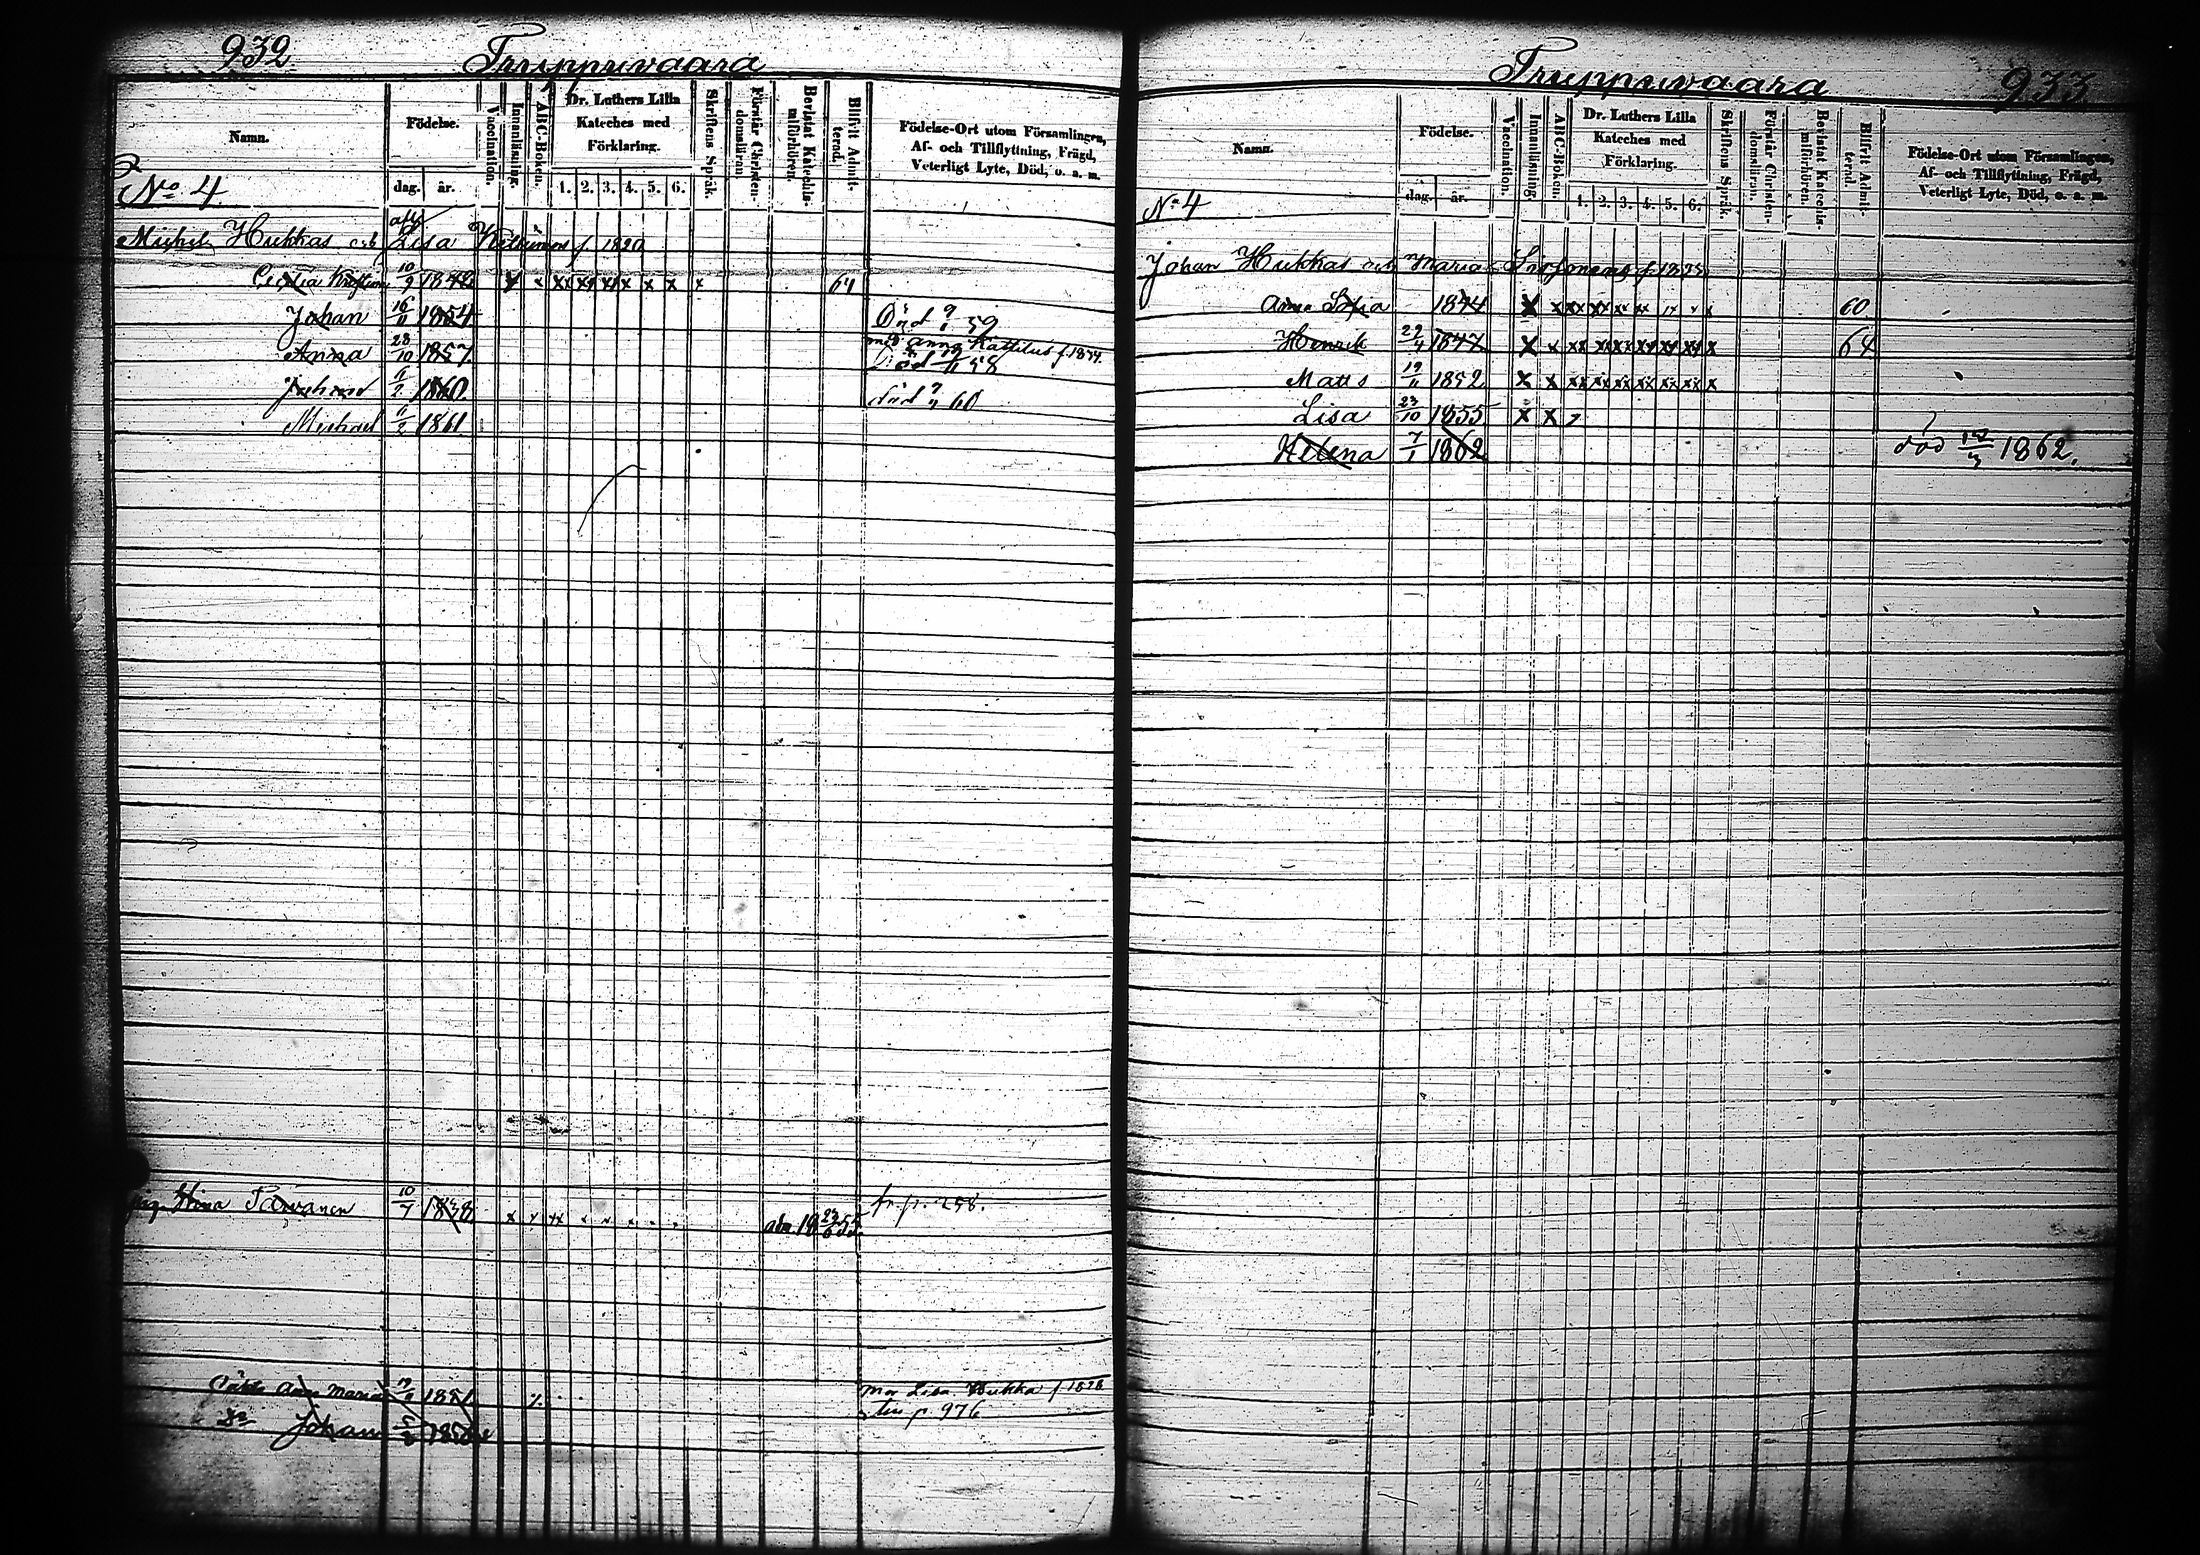 932
Truppuvaara
Namn.
Födelse.
dag. år.
Vaccination.
Innanläsning.
ABC-Boken.
Dr. Luthers Lilla
Kateches med
Förklaring.
1. 2. 3. 4. 5. 6.
Skriftens Språk.
Förstår Christen-
domsläran
Bevistat Katechis-
miförhören.
Blifvit Admit-
terad.
Födelse-Ort utom Församlingen,
Af- och Tillflyttning, Frägd,
Veterligt Lyte, Död, o. a. m.
No 4
Michel Hukkas och Lisa f. 1820
Cecilia 10/9 1842 x x xx xx xx x x x x 64
Johan 16/11 1854 Död 59
Anna 28/10 1857 Död 58
med Anna f. 1844.
Johan 11/2 1860 död 60
Michael 11/2 1861
Stina 10/7 1838 x x xx x x x adm 18 23/6 55. fr. p. 258.
Anna Maria 1851 mor Lisa Hukka f 1828
Do Johan 1858 p 976
Truppuvaara
933
Namn.
Födelse.
dag. år.
Vaccination.
Innanläsning.
ABC-Boken.
Dr. Luthers Lilla
Kateches med
Förklaring.
1. 2. 3. 4. 5. 6.
Skriftens Språk.
Förstår Christen-
domsläran.
Bevistat Katechis-
miförhören.
Blifvit Admit-
terad.
Födelse-Ort utom Församlingen,
Af- och Tillflyttning, Frägd,
Veterligt Lyte, Död, o. a. m.
No 4
Johan Hukkas och Maria
Anna Sofia 1844 x x xx xx xx xx 60
Henrik 29/4 1847 x x xx xx xx xx xx xx x 64
Matts 19/11 1852 x x xx xx xx xx xx xx x
Lisa 23/10 1855 x x
Helena 7/1 1862 död 1862.